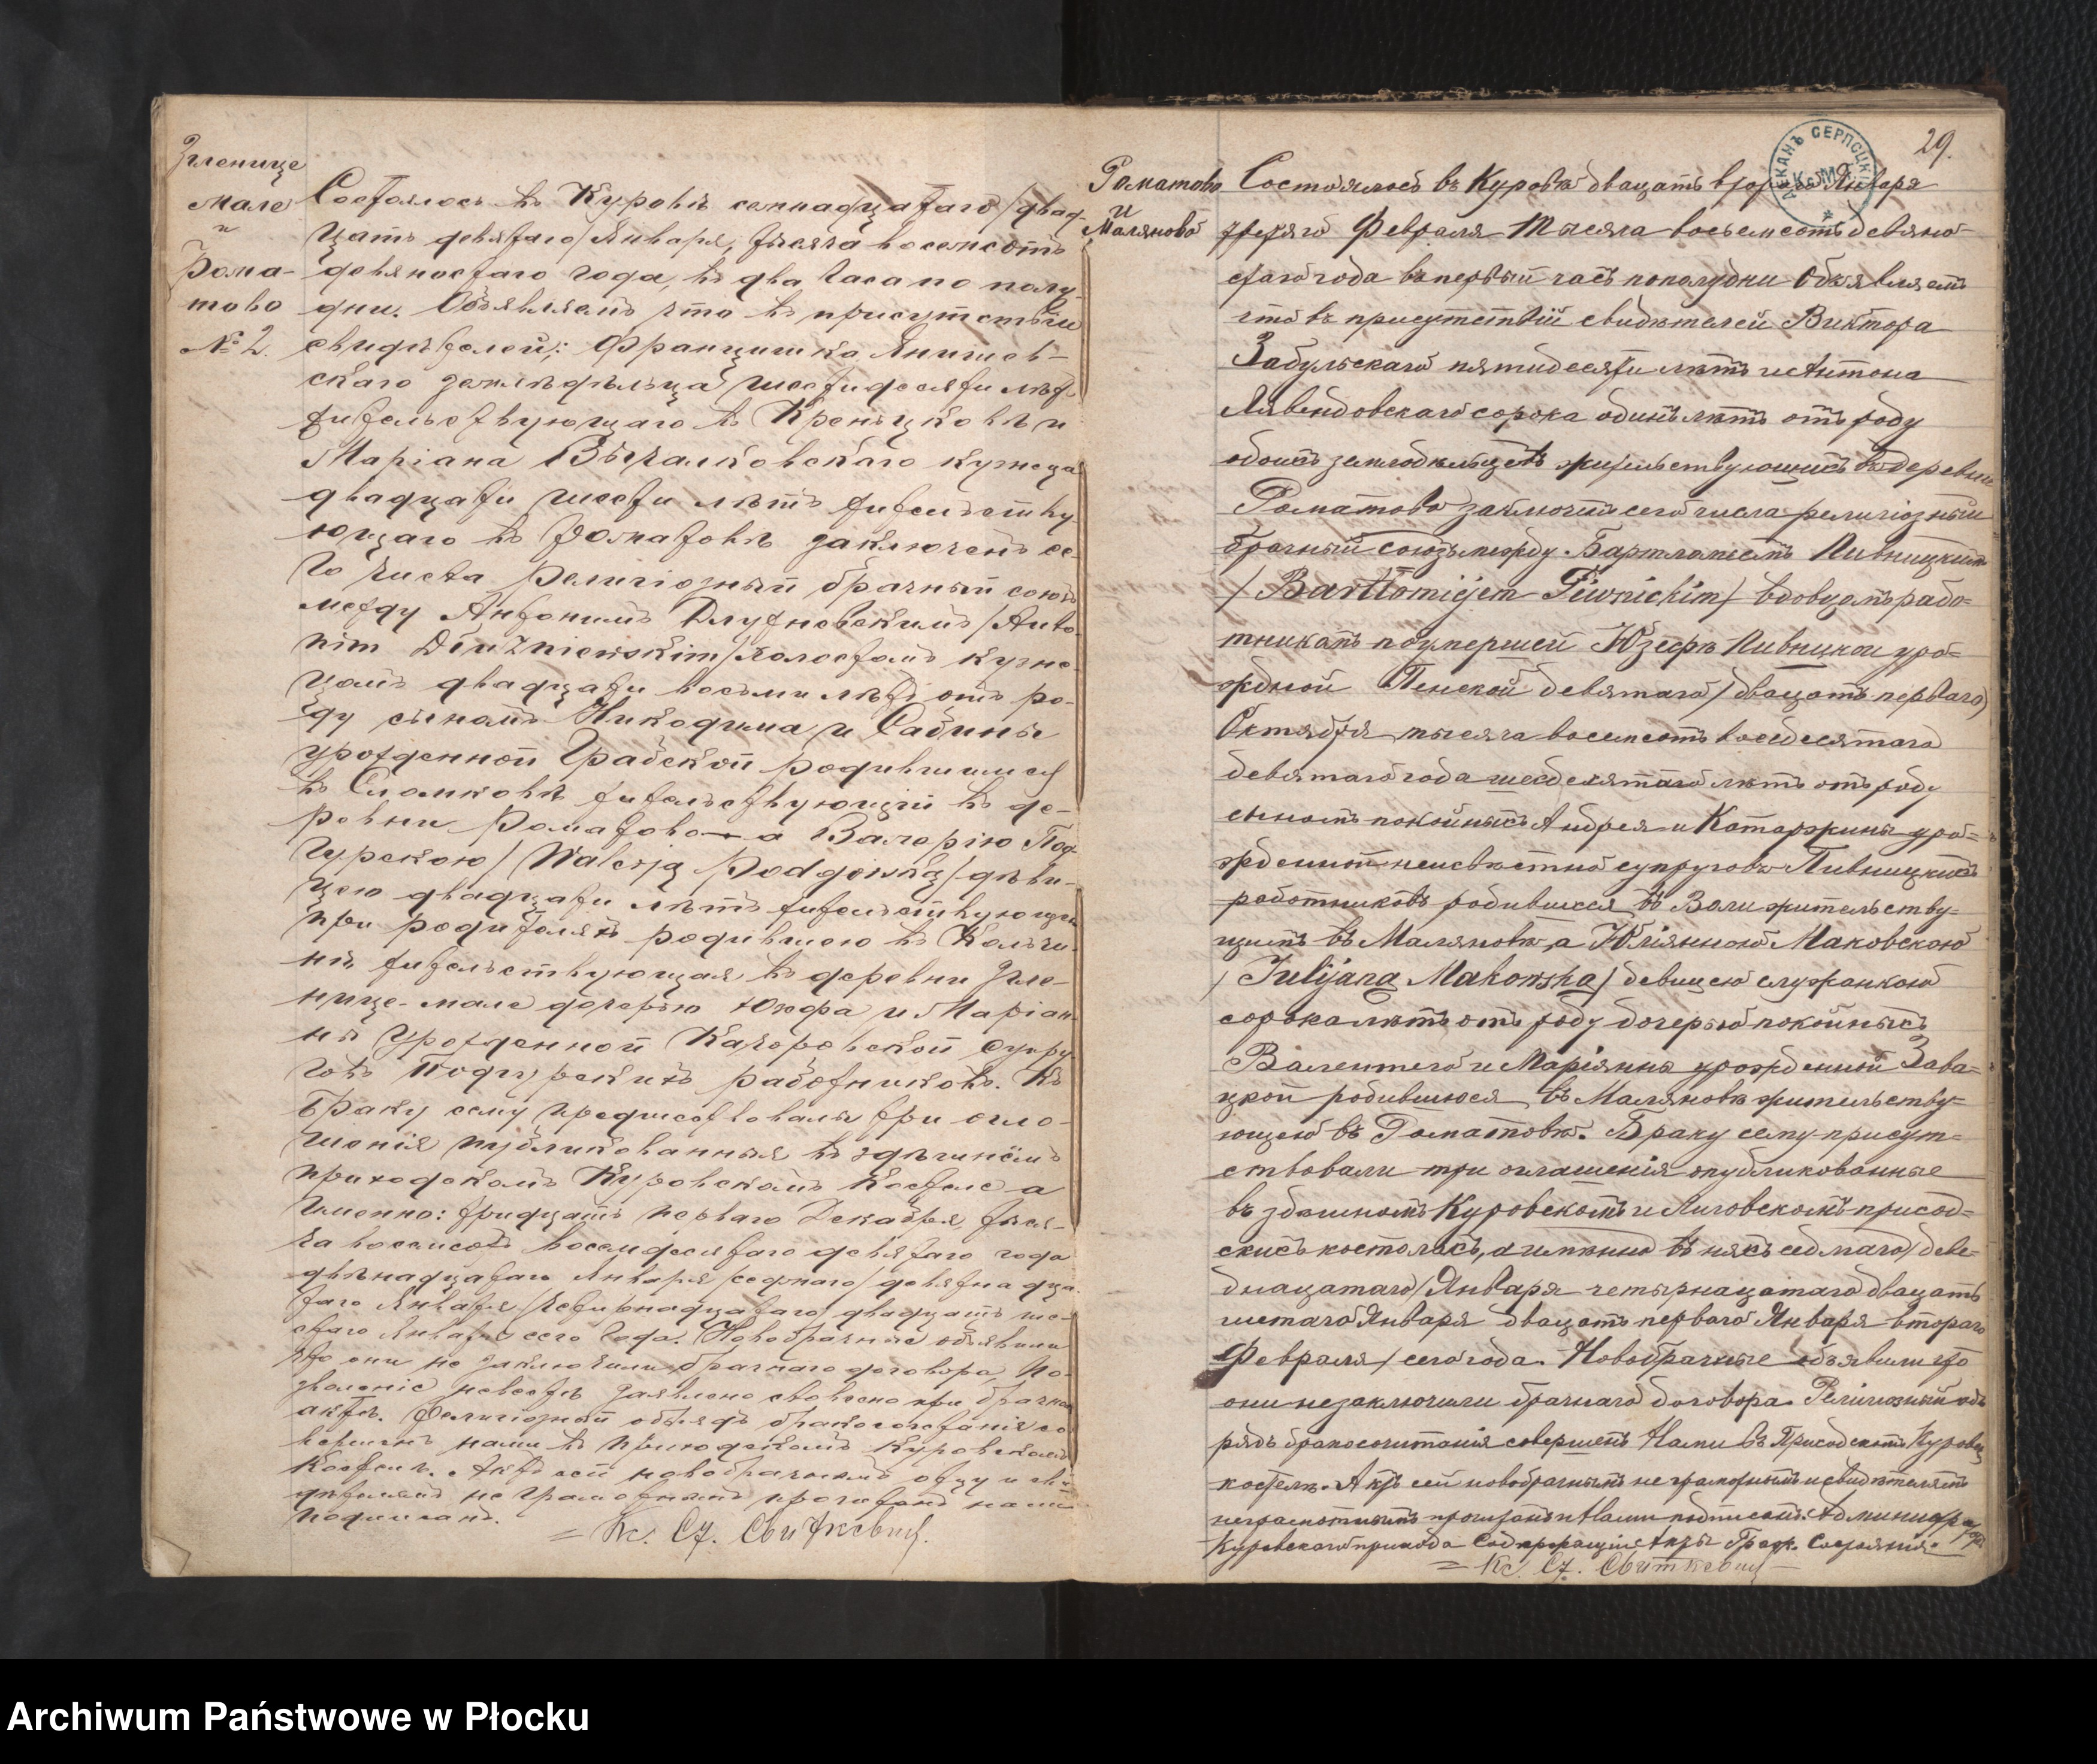 Згленице
мале
и
Рома-
тово
№ 2.
Состоялось въ Куровѣ семнадцатаго / двад-
цать девятаго / Января, тысяча восемсотъ
девяностаго года, въ два часа по полу-
дни. Объявляемъ что въ присутствіи
свидѣтелей: Францишка Янишев-
скаго земледѣльца шестидесяти лѣт
жительствующаго въ и
Маріана кузнеца
двадцати шести лѣтъ жительству
ющаго въ Роматовѣ заключенъ се-
го числа религіозный брачный союзъ
между Антонимъ Длужневскимъ / Anto-
nim Dłużniewskim / холостымъ кузне-
цомъ двадцати восьми лѣтъ отъ ро-
ду сыномъ Никодима и Сабины
урожденной Грабской родившимся
въ жительствующій въ де-
ревни Роматово а Валерію Под-
гурскою / Walerją Podgórską / дѣви-
цею двадцати лѣтъ жительствующую
при родителяхъ родившею въ
жительствующая въ деревни Згле-
нице-мале дочерью Юзефа и Маріан-
ны урожденной супру
говъ Подгурскихъ работниковъ. Къ
браку сему предшествовали три огло-
шенія публикованныя въ здѣшнемъ
приходскомъ Куровскомъ костеле а
именно: тридцать перваго Декабря тыся-
ча восемсотъ восемдесятаго девятаго года
двѣнадцатаго Января / седмаго / девятнадца
таго Января / четырнадцатаго / двадцать ше-
стаго Января сего года. Новобрачные объявили
что они не заключили брачнаго договора. По-
зволеніе невестѣ заявлено словесно при брачном
актѣ. Религіозный обрядъ бракосочетанія со-
вершенъ нами въ приходскомъ Куровскомъ
Костелѣ. Актъ сей новобрачнымъ отцу и сви-
дѣтелямъ не грамотнымъ прочитанъ нами
подписанъ.
= Кс. Ст. Свиткевичъ.
29.
ДЕКАНЪ СЕРПСЦКІЙ
Роматово
и
Маляново
Состоялось въ Куровѣ двацать втораго Января
третяго Февраля тысяча восьемсотъ девяно-
стаго года въ первый часъ пополудни Объявляемъ
что въ присутствіи свидѣтелей Виктора
Забульскаго пятидесяти лѣтъ и Антона
Лявендовскаго сорока одинъ лѣтъ отъ роду
обоихъ земледѣльцевъ жительствующихъ въ деревни
Роматово заключенъ сего числа религіозный
брачный союзъ между Бартломѣемъ Пивницкимъ
/ Bartłomiejem Piwnickim / вдовцомъ рабо-
тникомъ по умершей Юзефѣ Пивницкой уро-
жденой Пенской девятаго / двацать перваго /
Октября тысяча восемсотъ восемдесятаго
девятаго года шесдесятаго лѣтъ отъ роду
сыномъ покойныхъ Андрея и Катаржины уро-
жденной неизвѣстно супруговъ Пивницкихъ
работниковъ родившся въ Воли жительству-
щимъ въ Маляновѣ, а Юліянною Маковскою
/ Julijaną Makowską / девицею служанкою
сорока лѣтъ отъ роду дочерью покойныхъ
Валентего и Маріянны урожденной Зава-
цкой родившюеся въ Маляновѣ жительству-
ющею въ Роматовѣ. Браку сему присут-
ствовали три оглашенія опубликованные
въ здешномъ Куровскомъ и Лиговскомъ приход-
скихъ костелахъ, а именно въ нихъ седмаго / деве-
днацатаго / Января четырнацатаго двацать
шетаго Января двацать перваго Января втораго
Февраля / сего года. Новобрачные объявили что
они незаключили брачнаго договора. Религіозный об-
рядъ бракосочитанія совершенъ Нами въ Приходскомъ Куровск
костелѣ. Актъ сей новобрачнымъ не грамотнымъ и свидѣтелямъ
неграмотнымъ прочитанъ и Нами подписанъ. Администраторъ
Куровскаго прихода Содержащій Акты Граж. Состоянія.
= Кс. Ст. Свиткевичъ
Archiwum Państwowe w Płocku